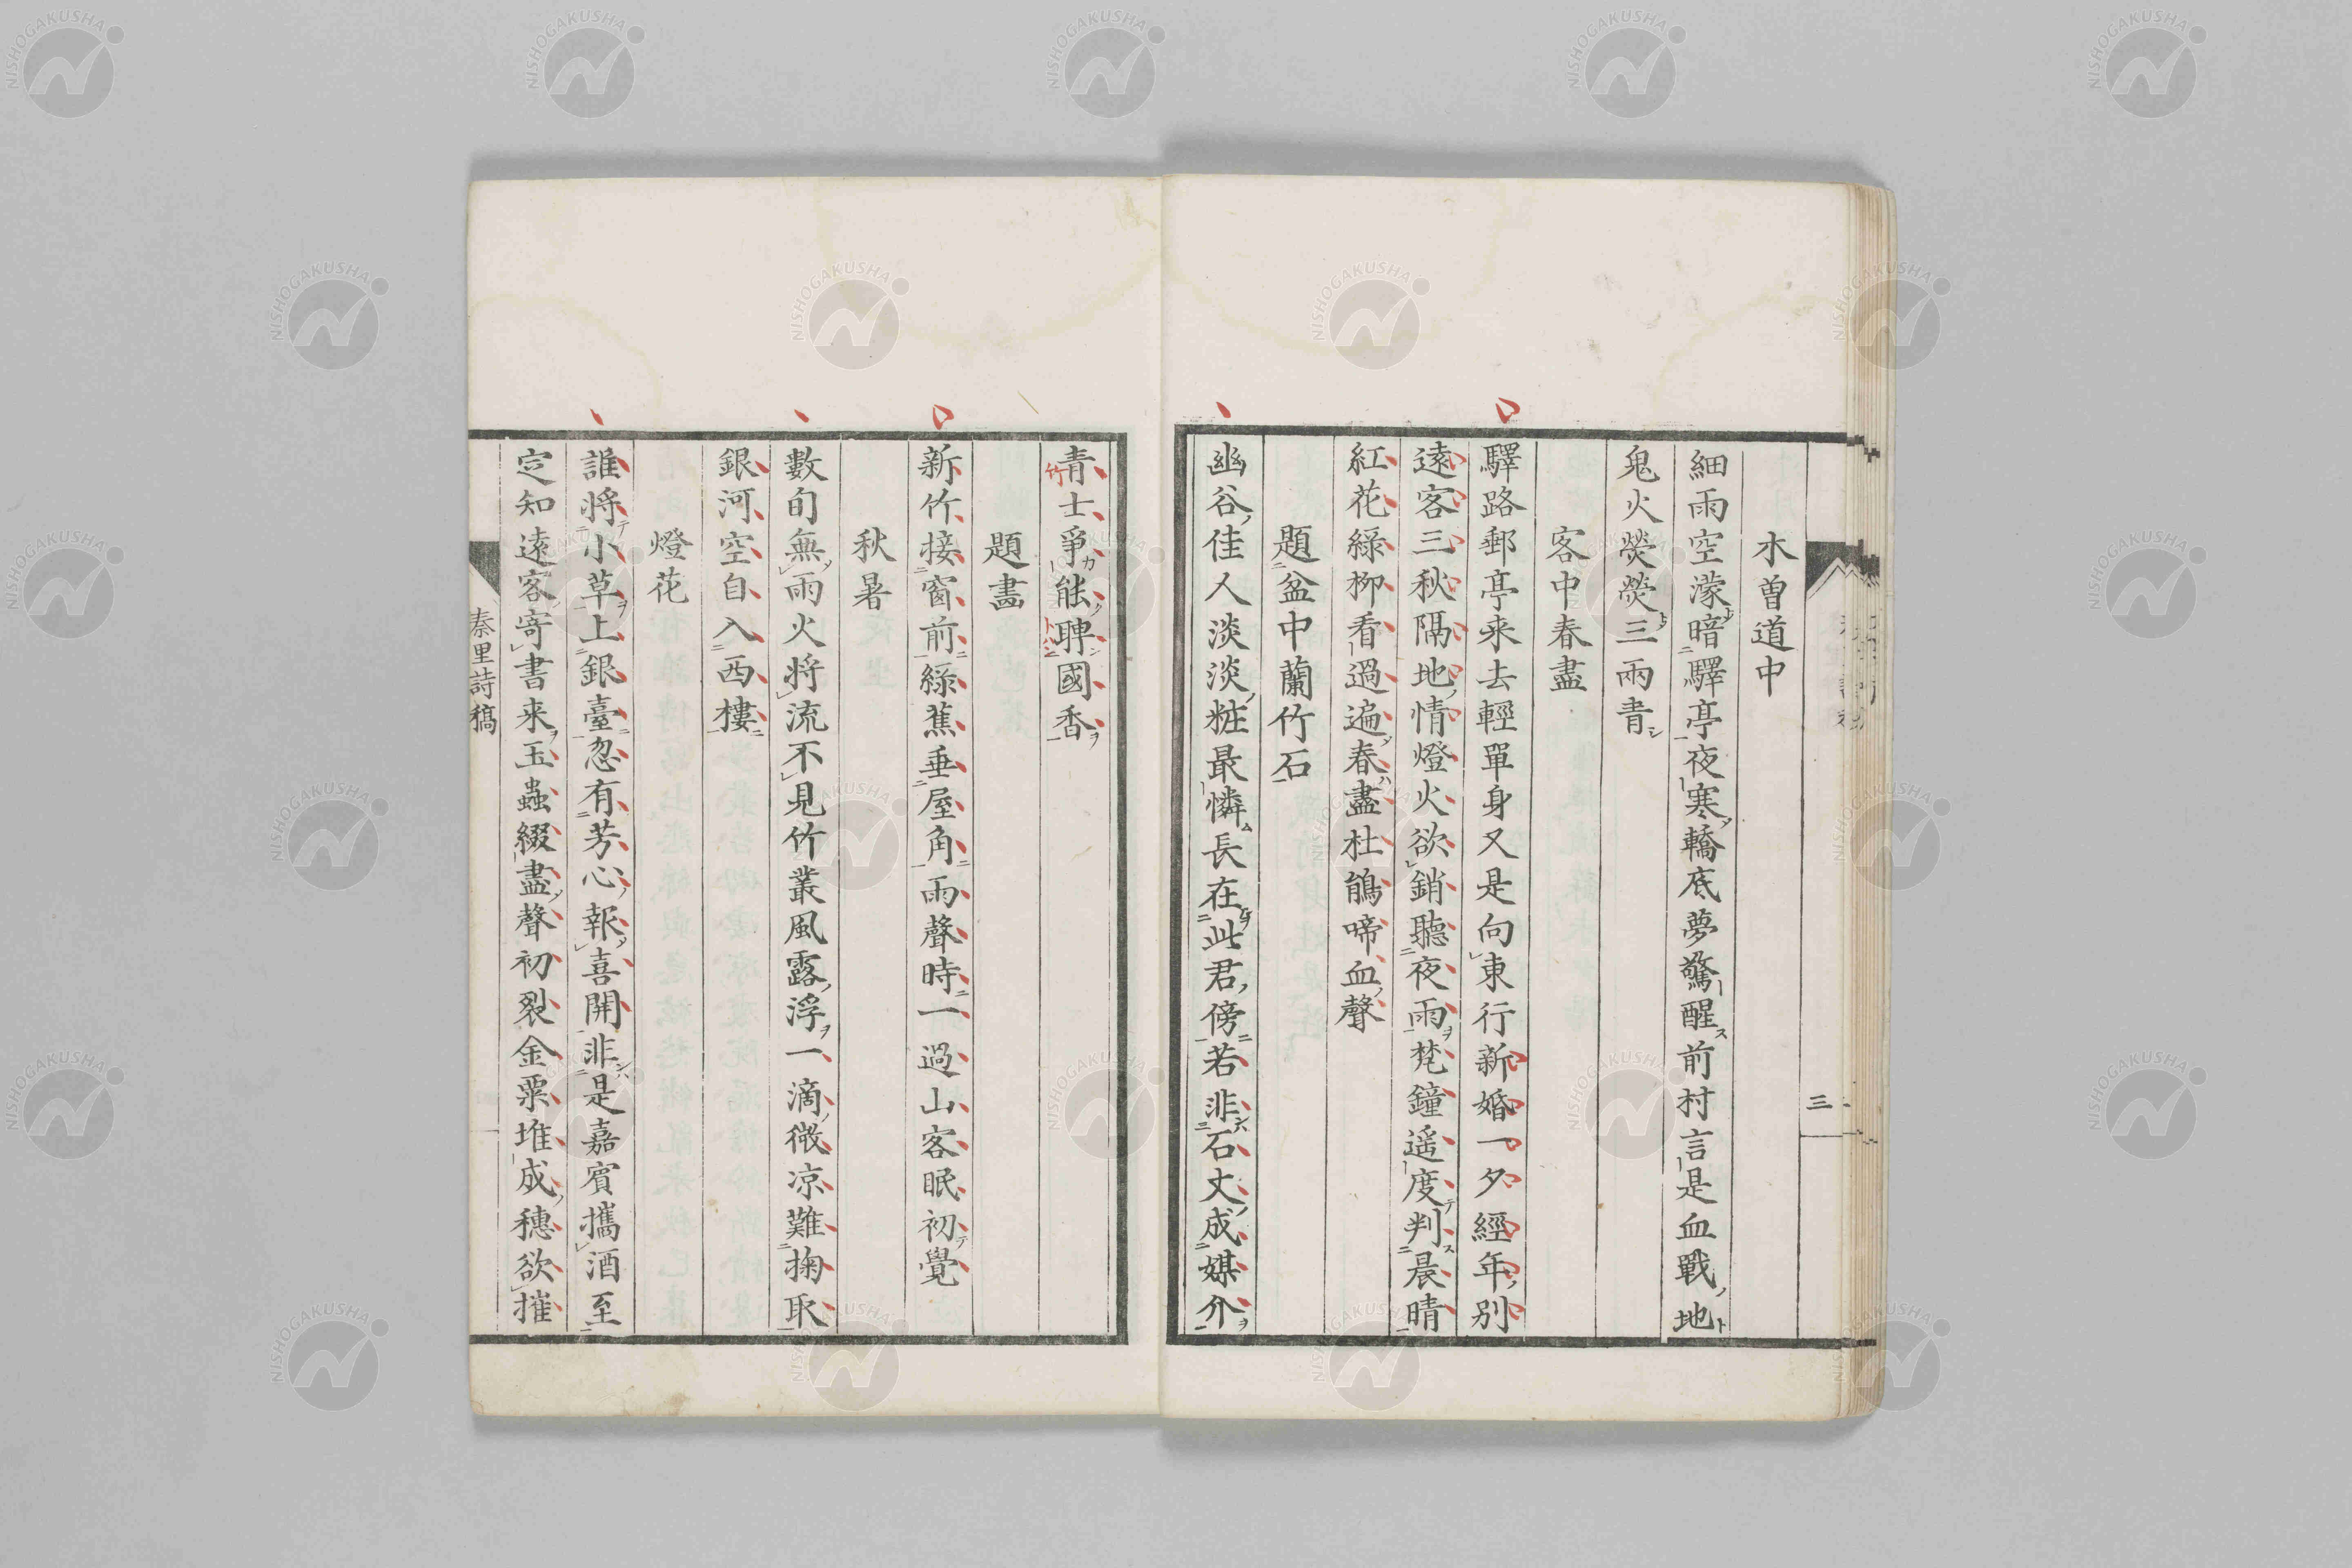 木曽道中
細雨空濛暗驛亭夜寒轎底夢驚醒前村言是血戰地
鬼火熒熒三兩青
客中春盡
驛路郵亭来去輕單身又是向東行新婚一夕經年別
遠客三秋隔地情燈火欲銷聽夜雨梵鐘遥度判晨晴
紅花綠柳看過遍春盡杜鵑啼血聲
題盆中蘭竹石
幽谷佳人淡淡粧最憐長在此君傍若非石丈成媒介
青士爭能聘國香
竹
題畫
新竹接窗前綠蕉垂屋角雨聲時一過山客眠初覺
秋暑
數旬無雨火将流不見竹叢風露浮一滴微凉難掬取
銀河空自入西樓
燈花
誰将小草上銀臺忽有芳心報喜開非是嘉賓攜酒至
定知遠客寄書来玉蟲綴盡聲初裂金粟堆成穗欲摧
秦里詩稿
三
NISHOGAKUSHA